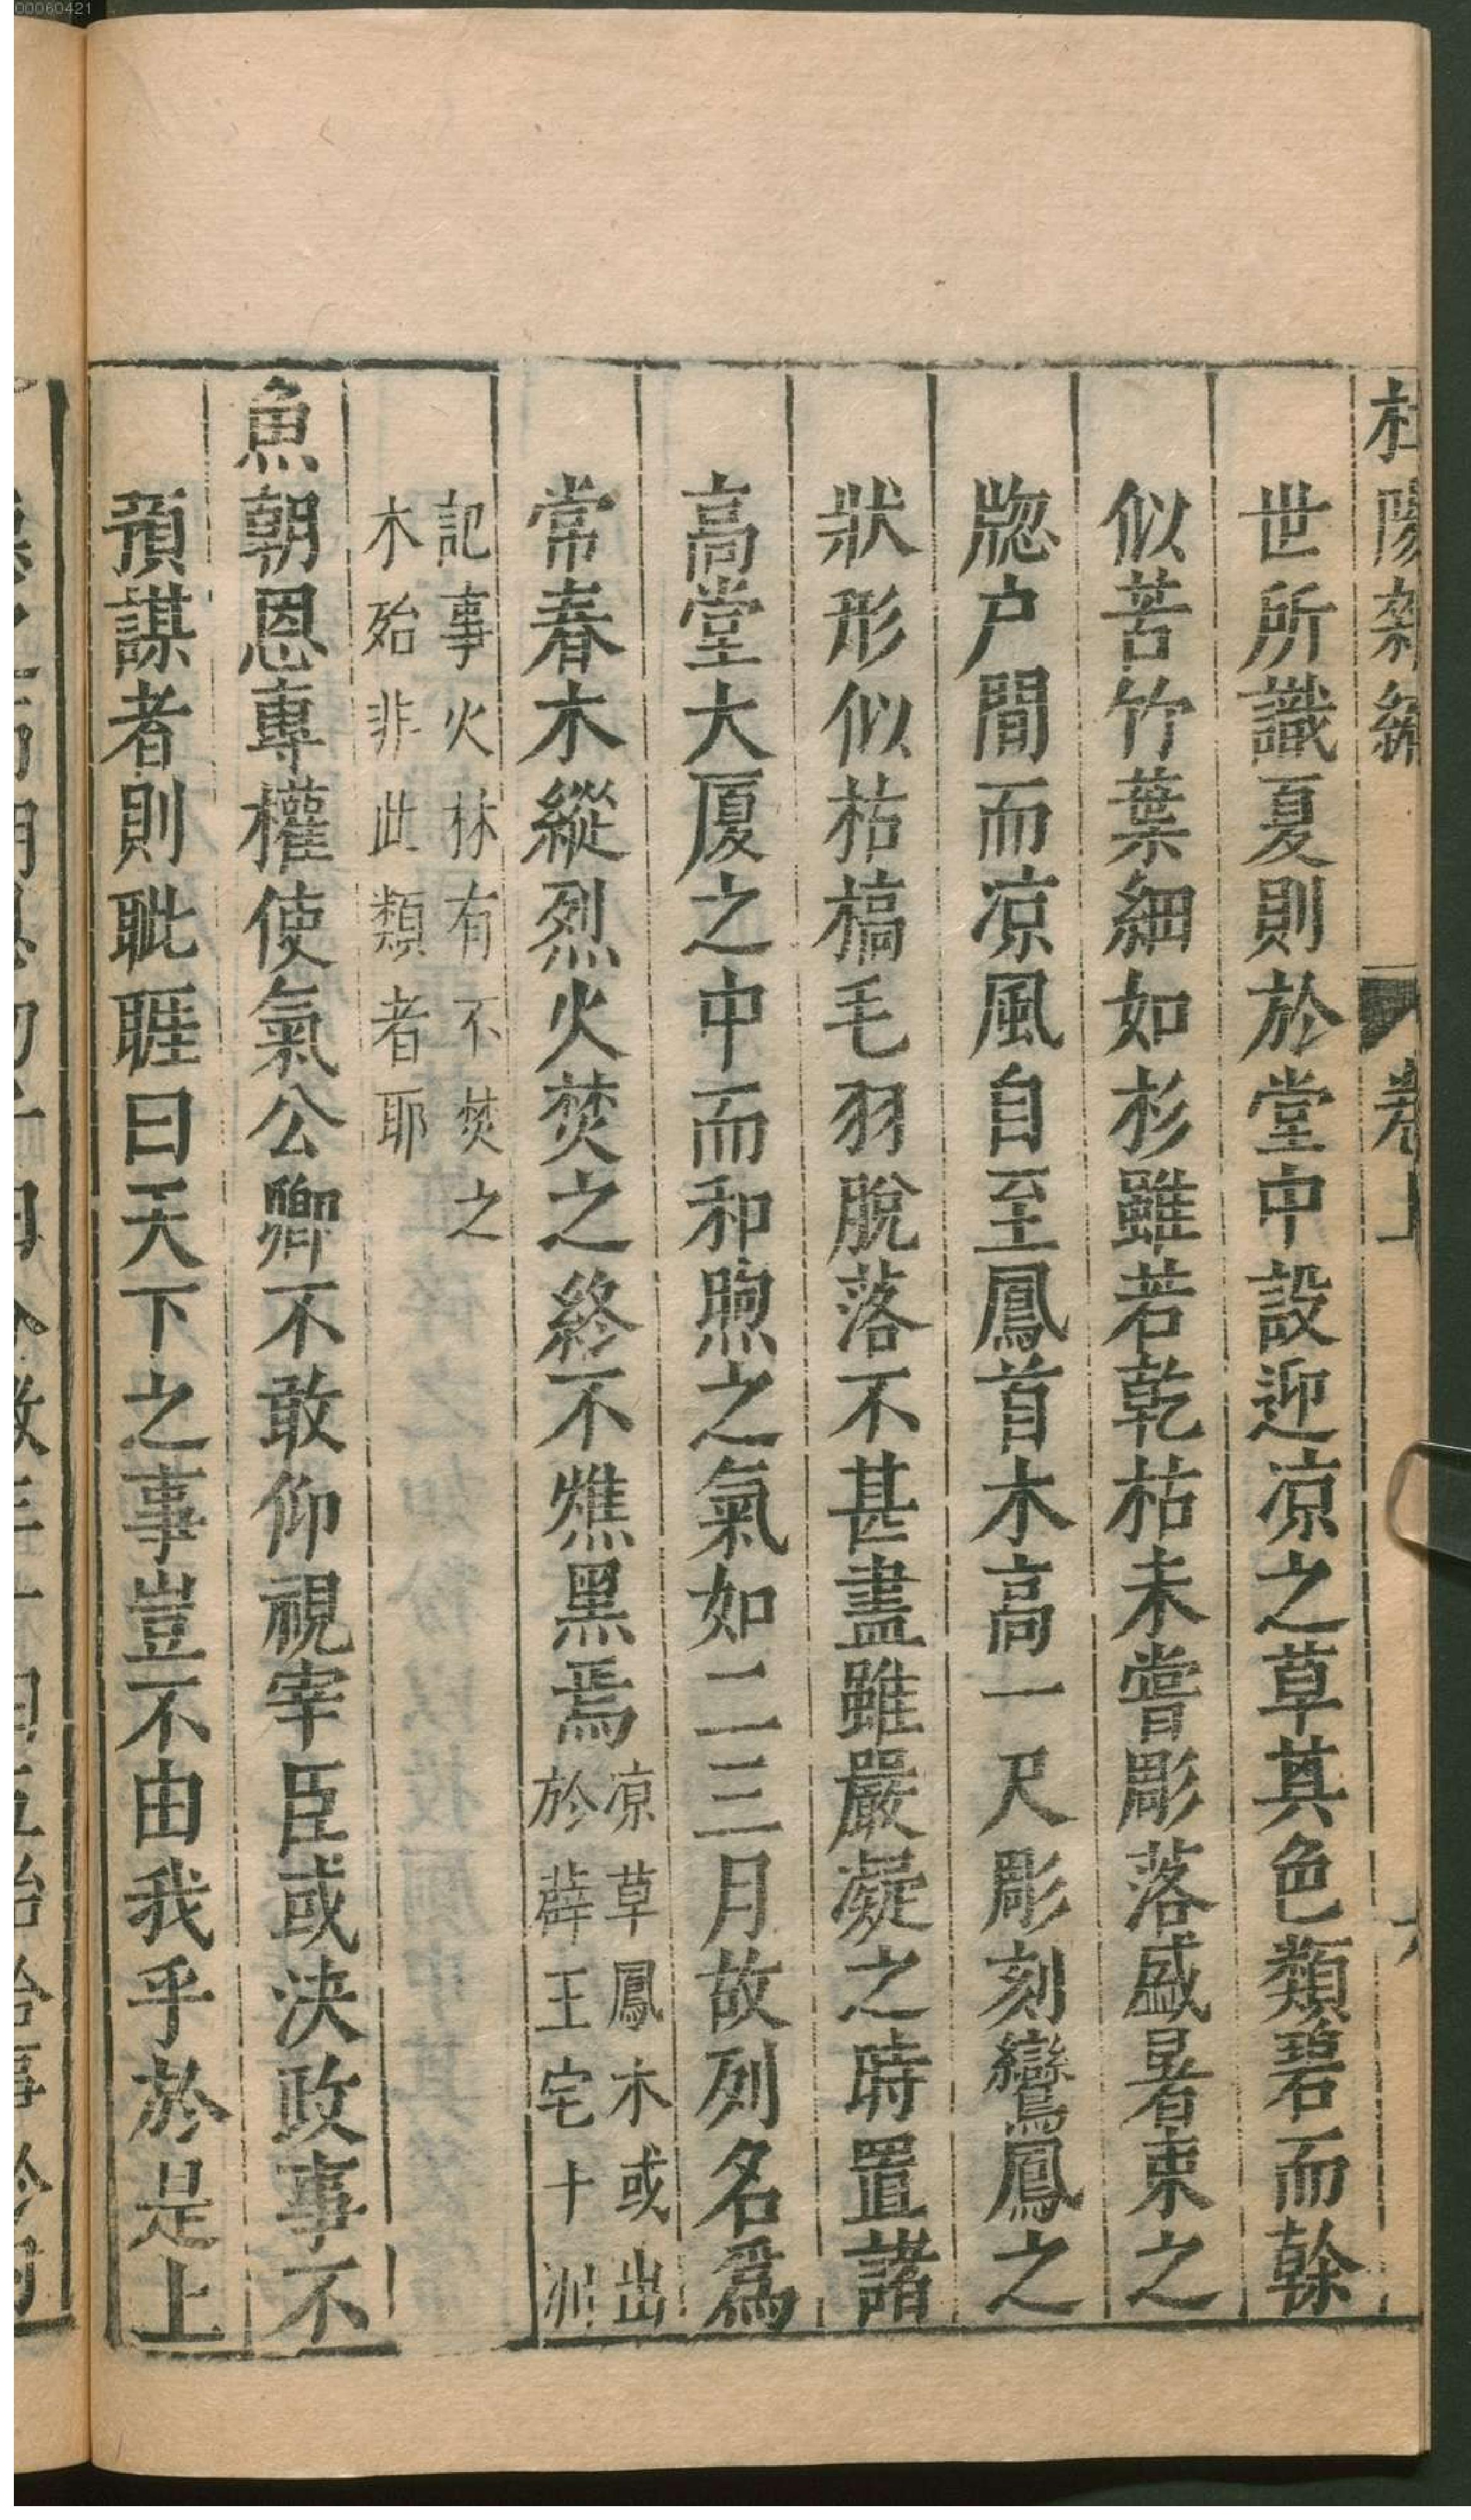 00060421
杜陽雜編
卷上
世所識夏則於堂中設迎凉之草其色類碧而榦
似苦竹葉細如杉雖若乾枯未嘗彫落盛暑束之
牎户間而凉風自至鳳首木高一尺彫刻鸞鳳之
狀形似枯槁毛羽脫落不甚盡雖嚴凝之時置諸
高堂大厦之中而和煦之氣如二三月故列名爲
常春木縱烈火焚之終不燋黑焉凉草鳳木或出
於薛王宅十洲
記事火林有不焚之
木殆非此類者耶
魚朝恩專權使氣公卿不敢仰視宰臣或決政事不
預謀者則眦睚曰天下之事豈不由我乎於是上